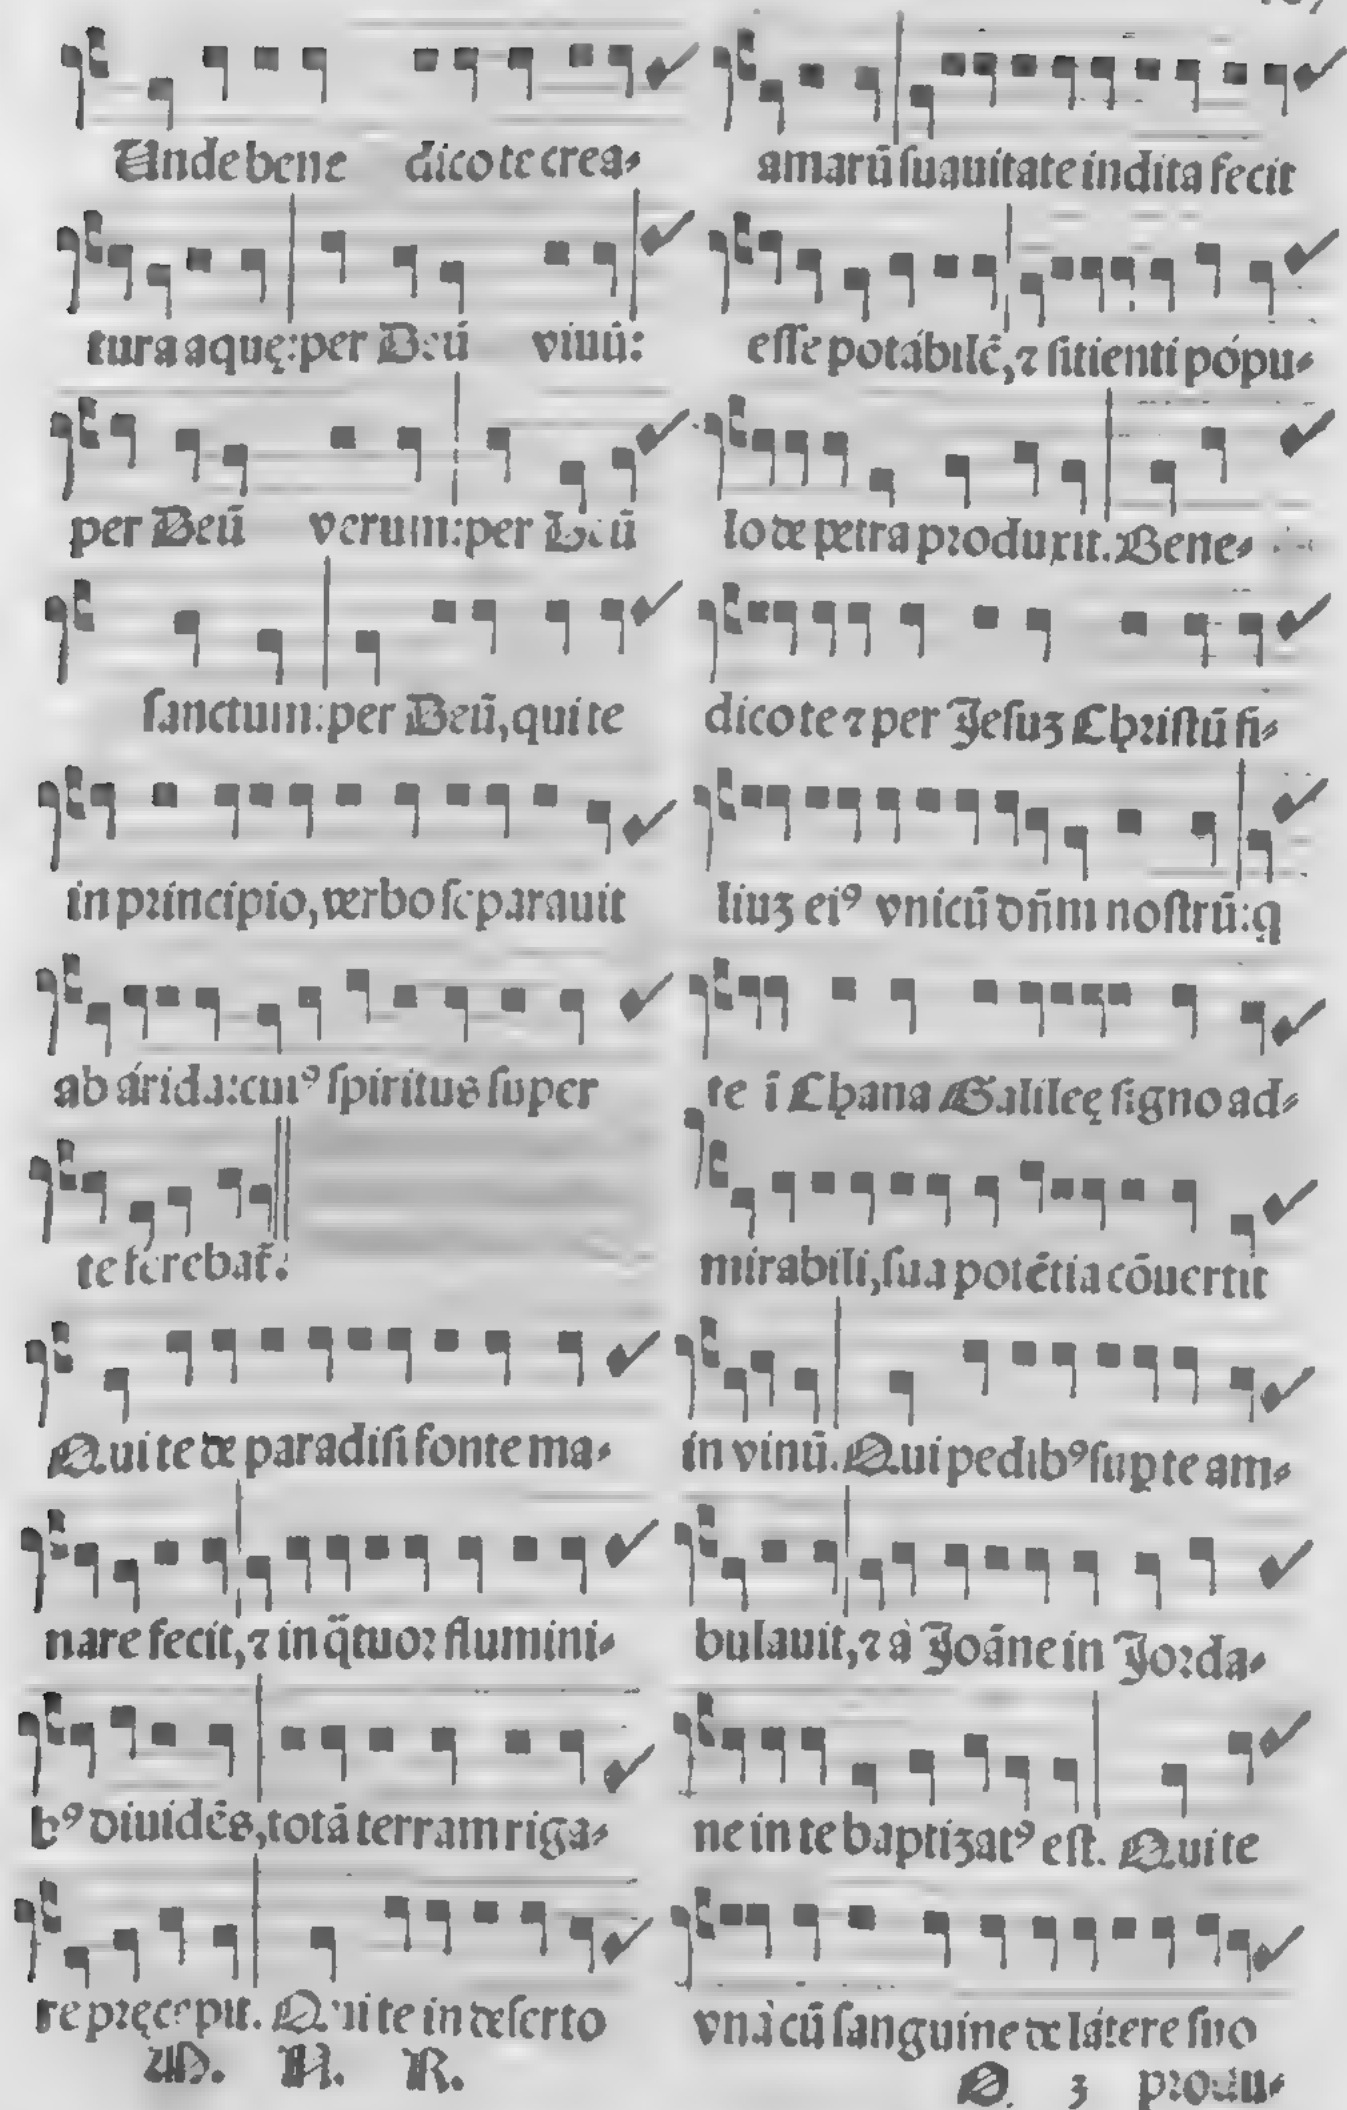 Unde bene dico te crea⸗
tura aquę: per Deū viuū:
per Deū verum: per Deū
ſanctum: per Deū, qui te
in principio, verbo ſeparauit
ab árida: cuiꝰ ſpiritus ſuper
te ferebat̃:
Qui te de paradiſi fonte ma⸗
nare fecit, ⁊ in q̈tuor flumini⸗
bꝰ diuidēs, totā terram riga⸗
re pręcepit. Qui te in deſerto
M. N. R.
amarū ſuauitate indita fecit
eſſe potábilē, ⁊ ſitienti pópu⸗
lo de petra produxit. Bene⸗
dico te ⁊ per Jeſuꝫ Chriſtū fi⸗
liuꝫ eiꝰ vnicū dn̄m noſtrū: q
te ī Chana Galileę ſigno ad⸗
mirabili, ſua potētia cōuertit
in vinū. Qui pedibꝰ ſuꝑ te am⸗
bulauit, ⁊ à Joāne in Jorda⸗
ne in te baptizatꝰ eſt. Qui te
vnà cū ſanguine de látere ſuo
O 3 produ⸗